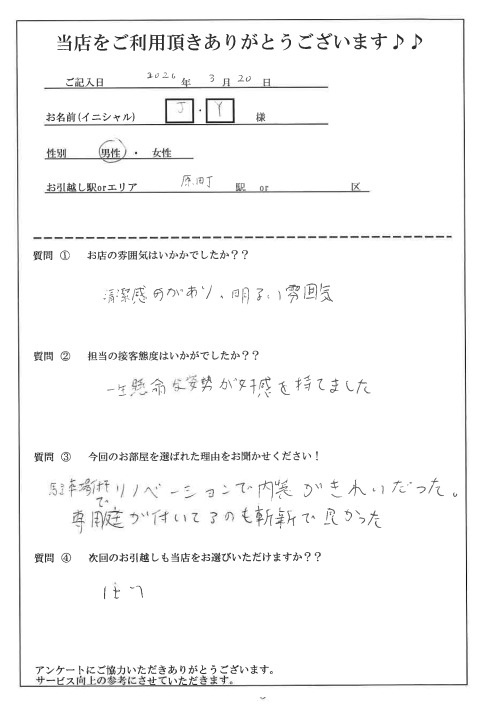 当店をご利用頂きありがとうございます♪♪
ご記入日 2020年 3月20日
お名前(イニシャル) J・Y 様
性別 男性・女性
お引越し駅orエリア 原町 駅 or 区
質問 ① お店の雰囲気はいかかでしたか??
清潔感のがあり、明るい雰囲気
質問 ② 担当の接客態度はいかがでしたか??
一生懸命な姿勢が好感を持てました
質問 ③ 今回のお部屋を選ばれた理由をお聞かせください!
駐車場付きで リノベーションで内装がきれいだった。
専用庭が付いてるのも斬新で良かった
質問 ④ 次回のお引越しも当店をお選びいただけますか??
はい
アンケートにご協力いただきありがとうございます。
サービス向上の参考にさせていただきます。